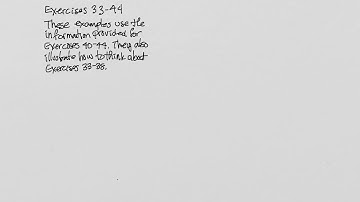 Exercises 33-44
These examples use the
information provided for
Exercises 40-44. They also
illustrate how to think about
Exercises 33-38.